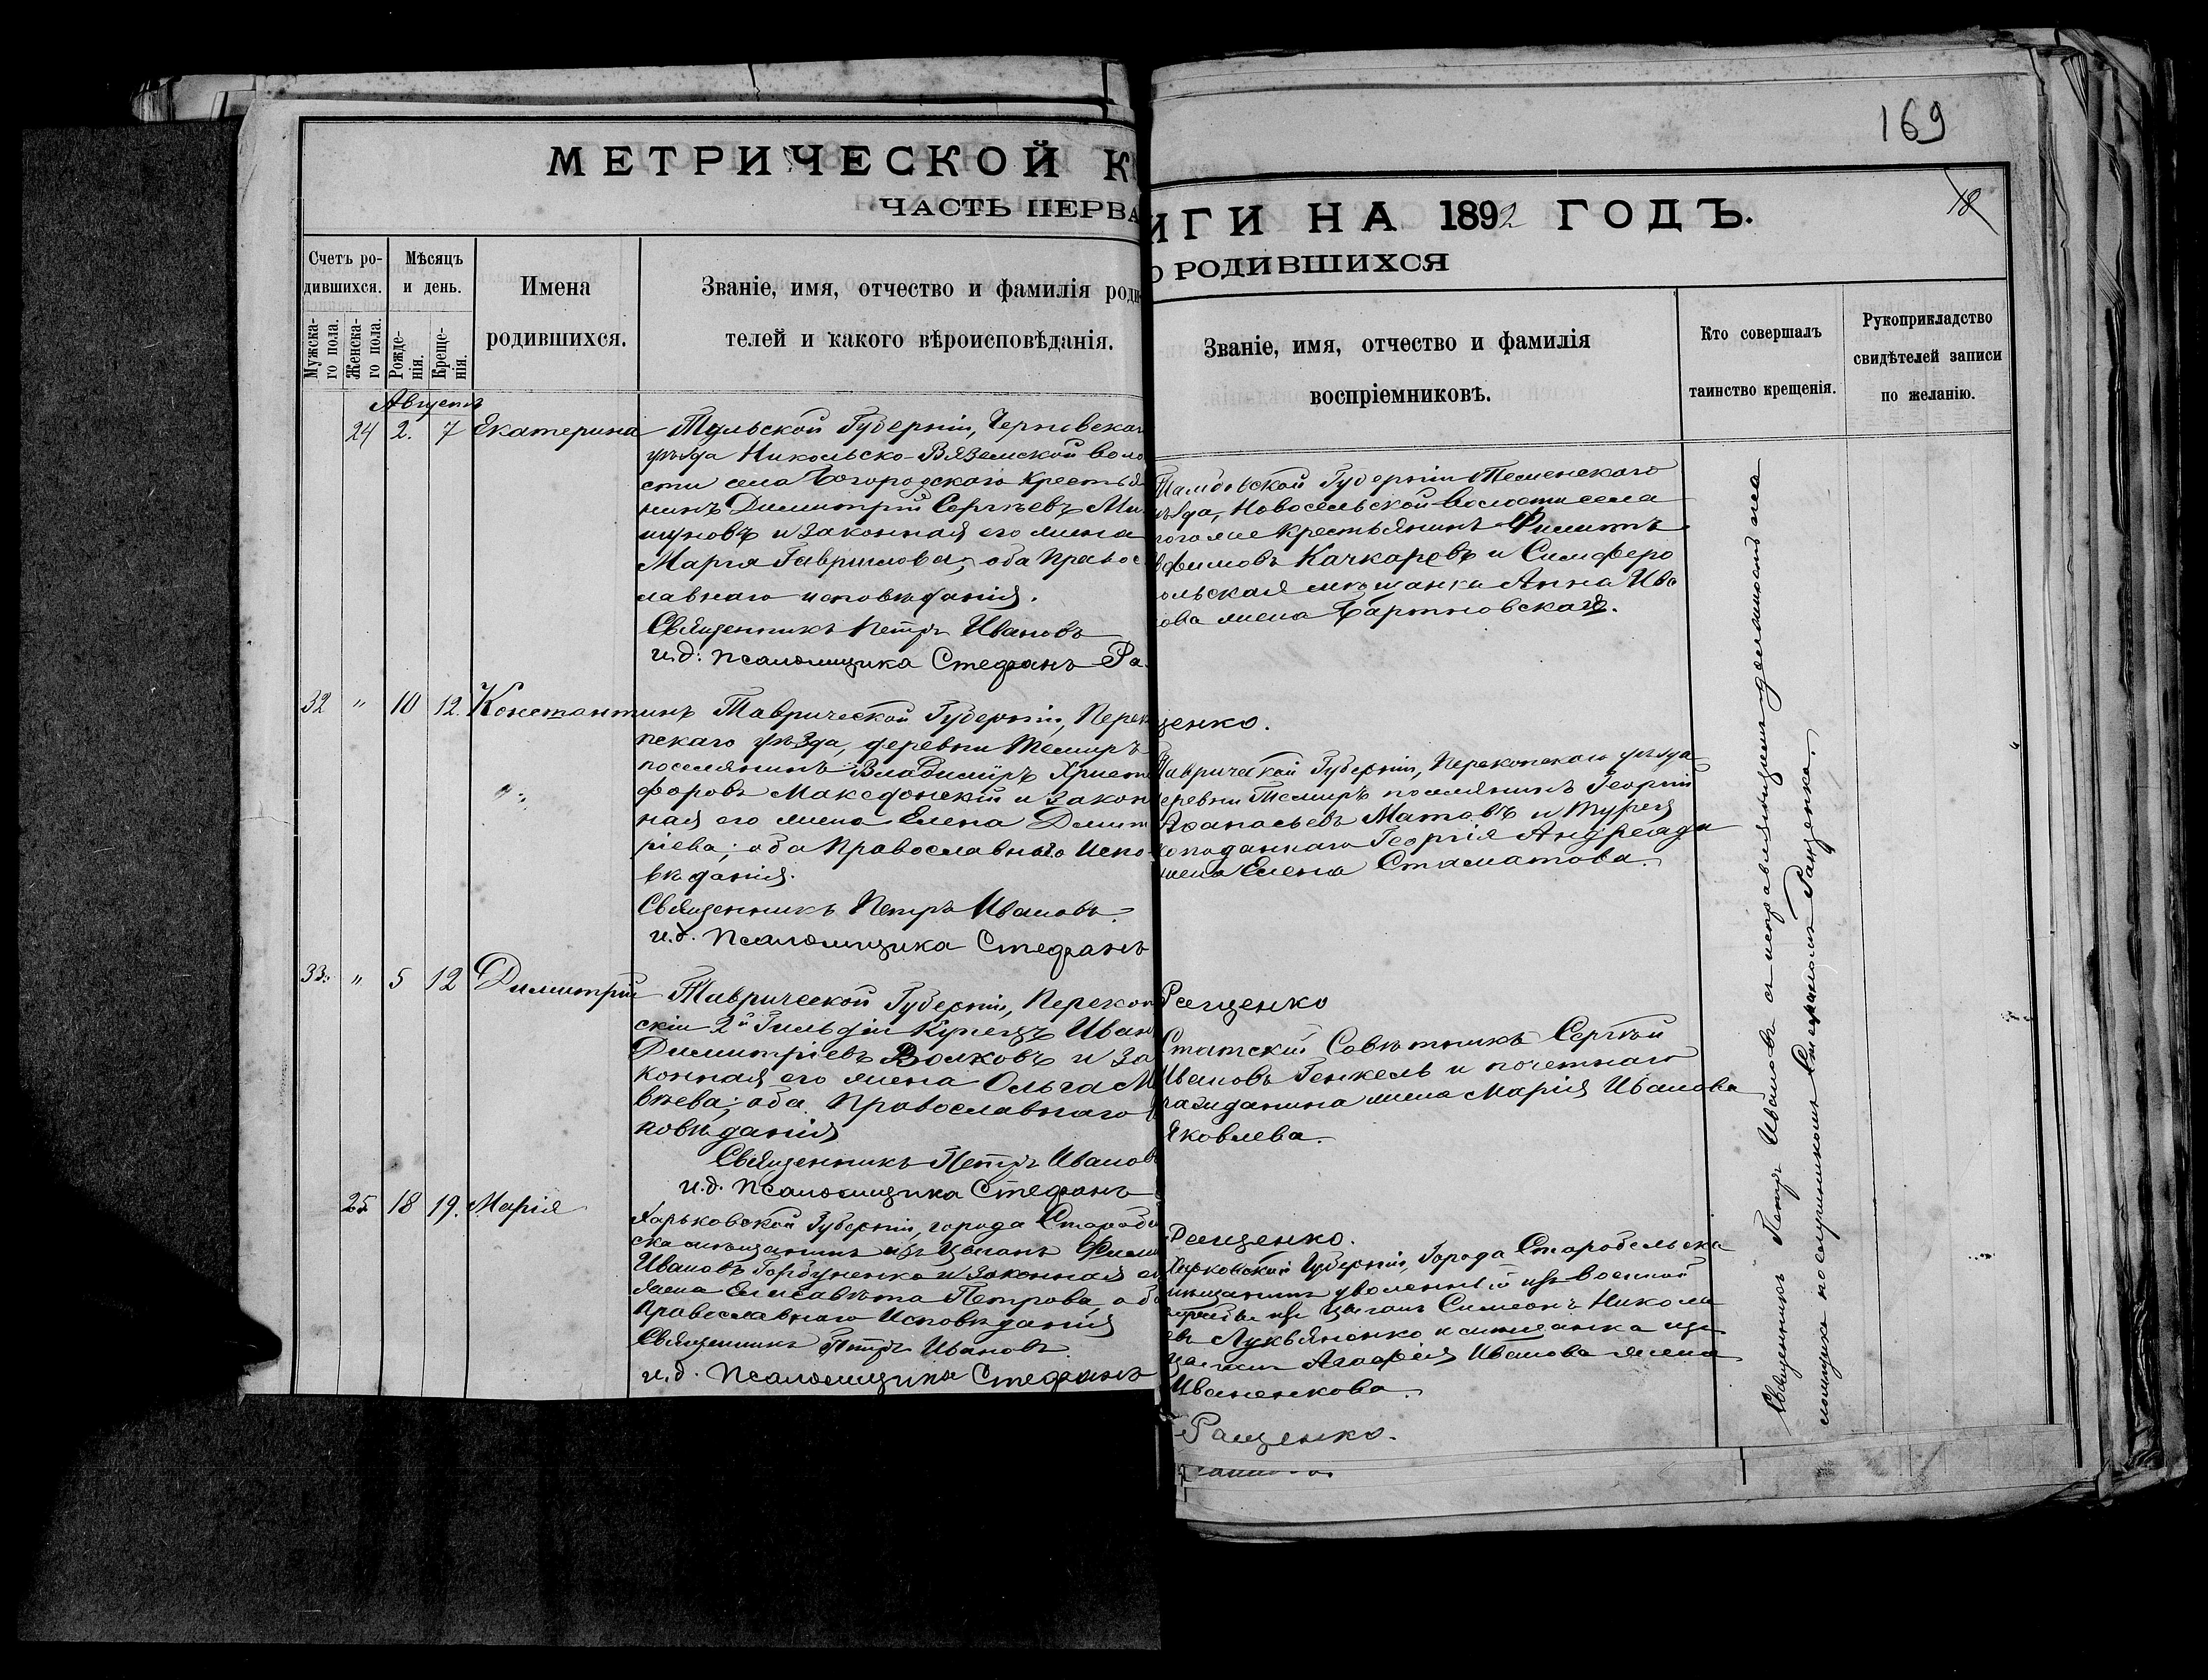 169
18
МЕТРИЧЕСКОЙ К
ЧАСТЬ ПЕРВА
ИГИ НА 1892 ГОДЪ.
О РОДИВШИХСЯ
Счетъ ро-
дившихся.
Мужска-
го пола.
Женска-
го пола.
Мѣсяцъ
и день.
Рожде-
нія.
Креще-
нія.
Имена
родившихся.
Званіе, имя, отчество и фамилія роди-
телей и какого вѣроисповѣданія.
Званіе, имя, отчество и фамилія
воспріемниковъ.
Кто совершалъ
таинство крещенія.
Рукоприкладство
свидѣтелей записи
по желанію.
Августъ
24 2. 7 Екатерина
Тульской Губерніи, Чернскаго
уѣзда Никольско-Вяземской воло
сти села Богородскаго Крестья
нинъ Димитрій Сергѣевъ
и законная его жена
Марія Гаврилова; оба Правос
лавнаго исповѣданія.
Священникъ Петръ Ивановъ
и.д. псаломщика Стефанъ Ра
Тамбовской Губерніи
уѣзда, Новосельской волости села
крестьянинъ Филиппъ
Качкаровъ и Симферо
польская мѣщанка Анна Ива
ова жена Бартновская.
щенко.
32 " 10 12. Константинъ
Таврической Губерніи, Переко
пскаго уѣзда, деревни Темиръ
поселянинъ Владиміръ Христо
форовъ Македонскій и закон
ная его жена Елена Димит
ріева; оба Православнаго Испо
вѣданія.
Священникъ Петръ Ивановъ.
и.д. псаломщика Стефанъ
Таврической Губерніи, Перекопскаго уѣзда
деревни Темиръ поселянинъ Георгій
Афанасьевъ Матовъ и Турец
коподаннаго Георгія Андреади
жена Елена Стаматова.
Ращенко
33. " 5 12 Димитрій
Таврической Губерніи, Перекоп
скій 2й Гильдіи Купецъ Иван
Димитріевъ Волковъ и за
конная его жена Ольга М
вѣева; оба Православнаго
повѣданія
Священникъ Петръ Ивановъ
и.д. псаломщика Стефанъ
Статскій Совѣтникъ Сергѣй
Ивановъ Генкель и почетнаго
гражданина жена Марія Иванова
Яковлева.
Ращенко.
25 18 19. Марія
Харьковской Губерніи, города Старобѣ
ска мѣщанинъ изъ Цыганъ
Ивановъ Горбуненко и законная е
жена Елисавета Петрова, об
Православнаго Исповѣданія
Священникъ Петръ Ивановъ
и.д. псаломщика Стефанъ
Харьковской Губерніи, Города Старобѣльска
мѣщанинъ уволенный изъ военной
службы изъ цыганъ Симеонъ Никола
евъ Лукьяненко и мѣщанка изъ
цыганъ Агафія Иванова жена
Иваненкова.
Ращенко.
Священникъ Петръ Ивановъ съ исправляющимъ должность пса
ломщика послушникомъ Стефаномъ Ращенко.